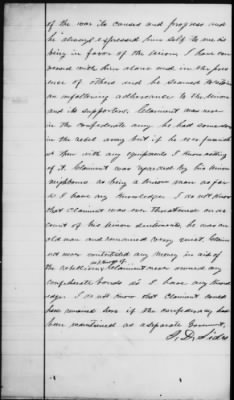 of the war its causes and progress and
he always expressed him self to me as
being in favor of the Union I have con
versed with him alone and in the pres
ence of others and he seemed to
an unfaltering adherance to the Union
and its supporters. Claimant was never
in the confederate army he had some sons
in the rebel army but if he ever furnished
them with any equipments I know nothing
of it. Claimant was regarded by his Union
neighbours as being a Union man as far
as I have any knowledge. I do not know
that claimant was ever threatened on ac
count of his Union sentiments, he was an
old man and remained very quiet. Claim
not never contributed any money in aid of
the rebellion claimant never owned any
nothing of
confederate bonds as I have any know
ledge. I do not know that claimant could
have remained loyal if the confederacy had
been maintained as a seperate Government.